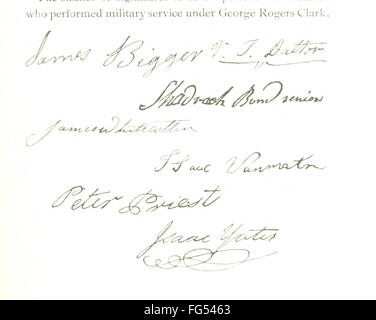 who performed military service under George Rogers Clark.
James Bigger V. T. Dalton
Shadrach Bond senior
James Whitecotten
Isaac Vanmatre
Peter Priest
Isaac Yates
FG5463